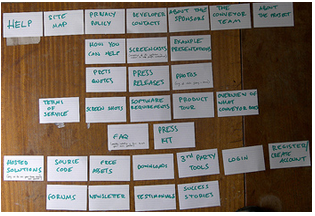 HELP
SITE
MAP
PRIVACY
POLICY
DEVELOPER
CONTACTS
ABOUT THE
SPONSORS
THE
CONVEYOR
TEAM
ABOUT
THE PROJECT
HOW YOU
CAN HELP
SCREENCASTS
EXAMPLE
PRESENTATIONS
PRESS
QUOTES
PRESS
RELEASES
PHOTOS
TERMS
OF
SERVICE
SCREEN SHOTS
SOFTWARE
REQUIREMENTS
PRODUCT
TOUR
OVERVIEW OF
WHAT
CONVEYOR DOES
FAQ
PRESS
KIT
HOSTED
SOLUTIONS
SOURCE
CODE
FREE
ASSETS
DOWNLOADS
3RD PARTY
TOOLS
LOGIN
REGISTER/
CREATE
ACCOUNT
FORUMS
NEWSLETTER
TESTIMONIALS
SUCCESS
STORIES